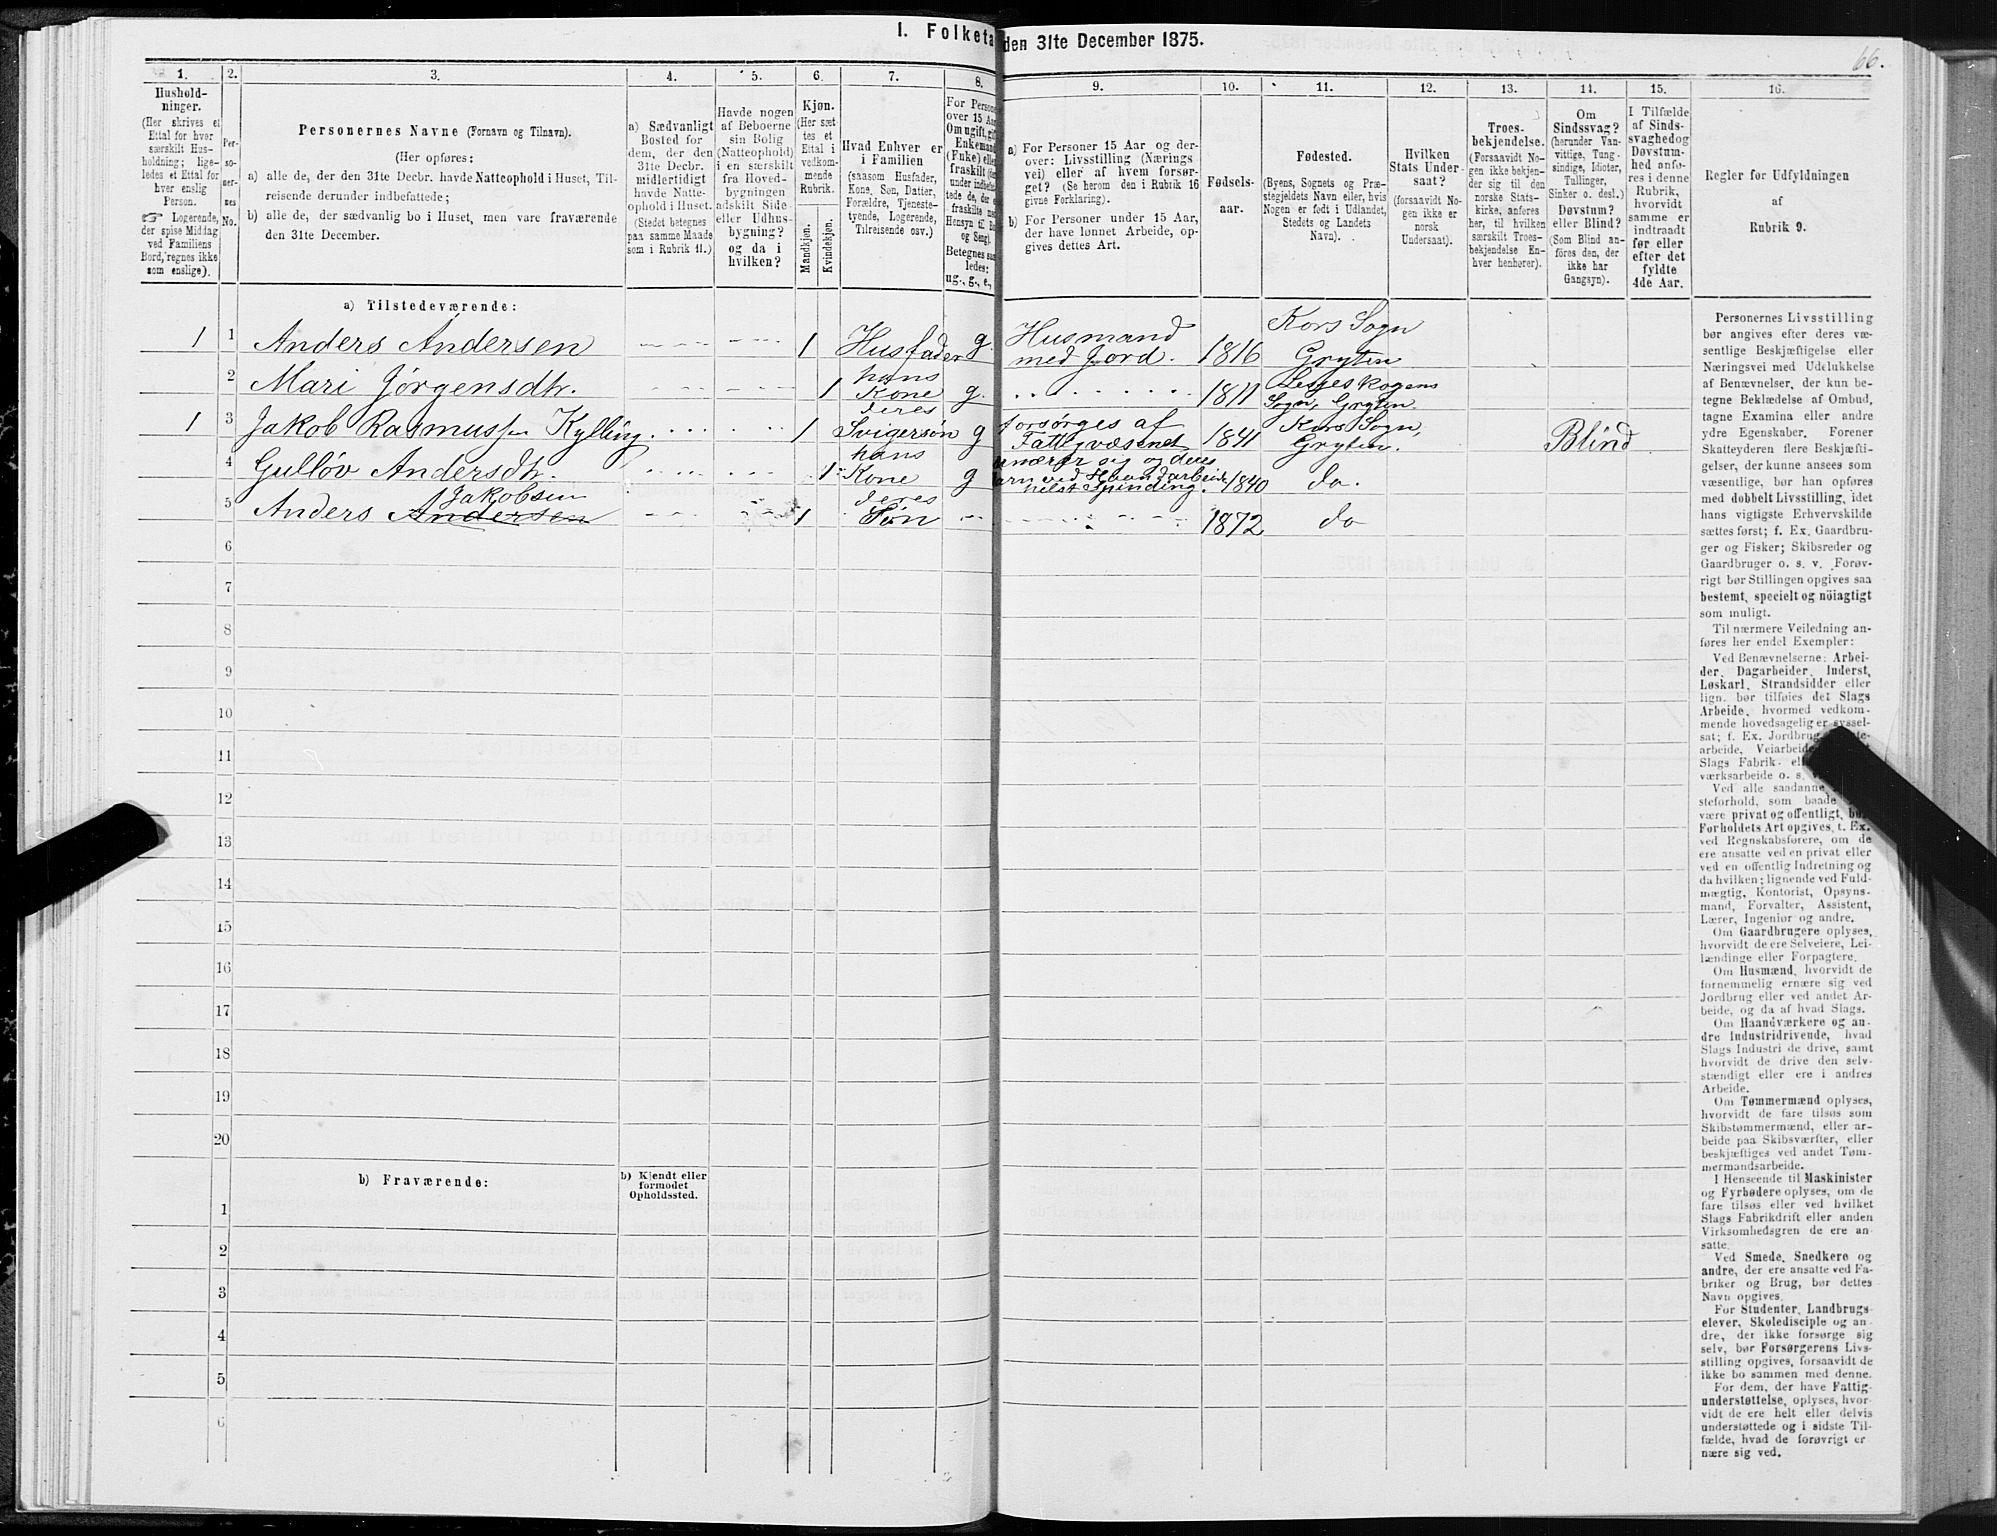 I. Folketa
den 31te December 1875.
66.
1.
2.
3.
4.
5.
6.
7.
8.
9.
10.
11.
12.
13.
14.
15.
16.
Hushold-
ninger.
(Her skrives et
Ettal for hver
særskilt Hus-
holdning; lige-
ledes et Ettal for
hver enslig
Person.
☞ Logerende,
der spise Middag
ved Familiens
Bord, regnes ikke
som enslige).
Per-
so-
ner-
nes
No.
Personernes Navne (Fornavn og Tilnavn).
(Her opføres:
a) alle de, der den 31te Decbr. havde Natteophold i Huset, Til-
reisende derunder indbefattede;
b) alle de, der sædvanlig bo i Huset, men vare fraværende
den 31te December.
a) Sædvanligt
Bosted for
dem, der den
31te Decbr.
midlertidigt
havde Natte-
ophold i Huset.
(Stedet betegnes
paa samme Maade
som i Rubrik 11.)
Havde nogen
af Beboerne
sin Bolig
(Natteophold)
i en særskilt
fra Hoved-
bygningen
adskilt Side-
eller Udhus-
bygning?
og da i
hvilken?
Kjøn.
(Her sæt-
tes et
Ettal i
vedkom-
mende
Rubrik.
Mandkjøn.
Kvindekjøn.
Hvad Enhver er
i Familien
(saasom Husfader,
Kone, Søn, Datter,
Forældre, Tjeneste-
tyende, Logerende,
Tilreisende osv.)
For Persone
over 15 Aar
Om ugift, gif
Enkemand
(Enke) elle
fraskilt (
under indbefat
tede de, der e
fraskilte me
Hensyn til Bo
og Seng).
Betegnes saa
ledes:
ug., g., e.,
a) For Personer 15 Aar og der-
over: Livsstilling (Nærings-
vei) eller af hvem forsør-
get? (Se herom den i Rubrik 16
givne Forklaring).
b) For Personer under 15 Aar,
der have lønnet Arbeide, op-
gives dettes Art.
Fødsels-
aar.
Fødested.
(Byens, Sognets og Præ-
stegjeldets Navn eller, hvis
Nogen er født i Udlandet,
Stedets og Landets
Navn).
Hvilken
Stats Under-
saat?
(forsaavidt No-
gen ikke er
norsk
Undersaat).
Troes-
bekjendelse.
(Forsaavidt No-
gen ikke bekjen-
der sig til den
norske Stats-
kirke, anføres
her, til hvilken
særskilt Troes-
bekjendelse En-
hver henhører).
Om
Sindssvag?
(herunder Van-
vittige, Tung-
sindige, Idioter,
Tullinger,
Sinker o. desl.)
Døvstum?
eller Blind?
(Som Blind an-
føres den, der
ikke har
Gangsyn).
I Tilfælde
af Sinds-
svaghedog
Døvstum-
hed anfø-
res i denne
Rubrik,
hvorvidt
samme er
indtraadt
før eller
efter det
fyldte
4de Aar.
Regler for Udfyldningen
af
Rubrik 9.
a) Tilstedeværende:
1 1 Anders Andersen 1 Husfader g. Husmand
med Jord. 1816 Kors Sogn
Gryten
2 Mari Jørgensdtr. 1 hans
Kone g. 1811 Lesjeskogens
Sogn, Gryten.
1 3 Jakob Rasmussen Kylling 1 deres
Svigersøn g forsørges af
Fattigvæsenet 1841 Kors Sogn,
Gryten. Blind
4 Gulløv Andersdtr. 1 hans
Kone g ernærer sig og deres
Barn ved Haandarbeide
helst Spinding. 1840 do.
Jakobsen
5 Anders Andersen 1 deres
Søn 1872 do
6
7
8
9
10
11
12
13
14
15
16
17
18
19
20
b) Fraværende:
b) Kjendt eller
formodet
Opholdssted.
1
2
3
4
5
6
Personernes Livsstilling
bør angives efter deres væ-
sentlige Beskjæftigelse eller
Næringsvei med Udelukkelse
af Benævnelser, der kun be-
tegne Beklædelse af Ombud,
tagne Examina eller andre
ydre Egenskaber. Forener
Skatteyderen flere Beskjæfti-
gelser, der kunne ansees som
væsentlige, bør han opføres
med dobbelt Livsstilling, idet
hans vigtigste Erhvervskilde
sættes først; f. Ex. Gaardbru-
ger og Fisker; Skibsreder og
Gaardbruger o. s. v. Forøv-
rigt bør Stillingen opgives saa
bestemt, specielt og nöiagtigt
som muligt.
Til nærmere Veiledning an-
føres her endel Exempler:
Ved Benævnelserne: Arbei-
der, Dagarbeider, Inderst,
Løskarl, Strandsidder eller
lign. bør tilføies det Slags
Arbeide, hvormed vedkom-
mende hovedsagelig er syssel-
sat; f. Ex. Jordbrug
arbeide, Veiarbeide
Slags Fabrik- el
værksarbeide o. s. v.
Ved alle saadanne
steforhold, som baade
være privat og offentligt, bør
Forholdets Art opgives, t. Ex.
ved Regnskabsførere, om de
ere ansatte ved en privat eller
ved en offentlig Indretning og
da hvilken; lignende ved Fuld-
mægtig, Kontorist, Opsyns-
mand, Forvalter, Assistent,
Lærer, Ingeniør og andre.
Om Gaardbrugere oplyses,
hvorvidt de ere Selveiere, Lei-
lændinge eller Forpagtere.
Om Husmænd, hvorvidt de
fornemmelig ernære sig ved
Jordbrug eller ved andet Ar-
beide, og da af hvad Slags.
Om Haandværkere og an-
dre Industridrivende, hvad
Slags Industri de drive, samt
hvorvidt de drive den selv-
stændigt eller ere i andres
Arbeide.
Om Tømmermænd oplyses,
hvorvidt de fare tilsøs som
Skibstømmermænd, eller ar-
beide paa Skibsværfter, eller
beskjæftiges ved andet Tøm-
mermandsarbeide.
I Henseende til Maskinister
og Fyrbødere oplyses, om de
fare tilsøs eller ved hvilket
Slags Fabrikdrift eller anden
Virksomhedsgren de ere an-
satte.
Ved Smede, Snedkere og
andre, der ere ansatte ved Fa-
briker og Brug, bør dettes
Navn opgives.
For Studenter, Landbrugs-
elever, Skoledisciple og an-
dre, der ikke forsørge sig
selv, bør Forsørgerens Livs-
stilling opgives, forsaavidt de
ikke bo sammen med denne.
For dem, der have Fattig-
understøttelse, oplyses, hvor-
vidt de ere helt eller delvis
understøttede og i sidste Til-
fælde, hvad de forøvrigt er-
nære sig ved.